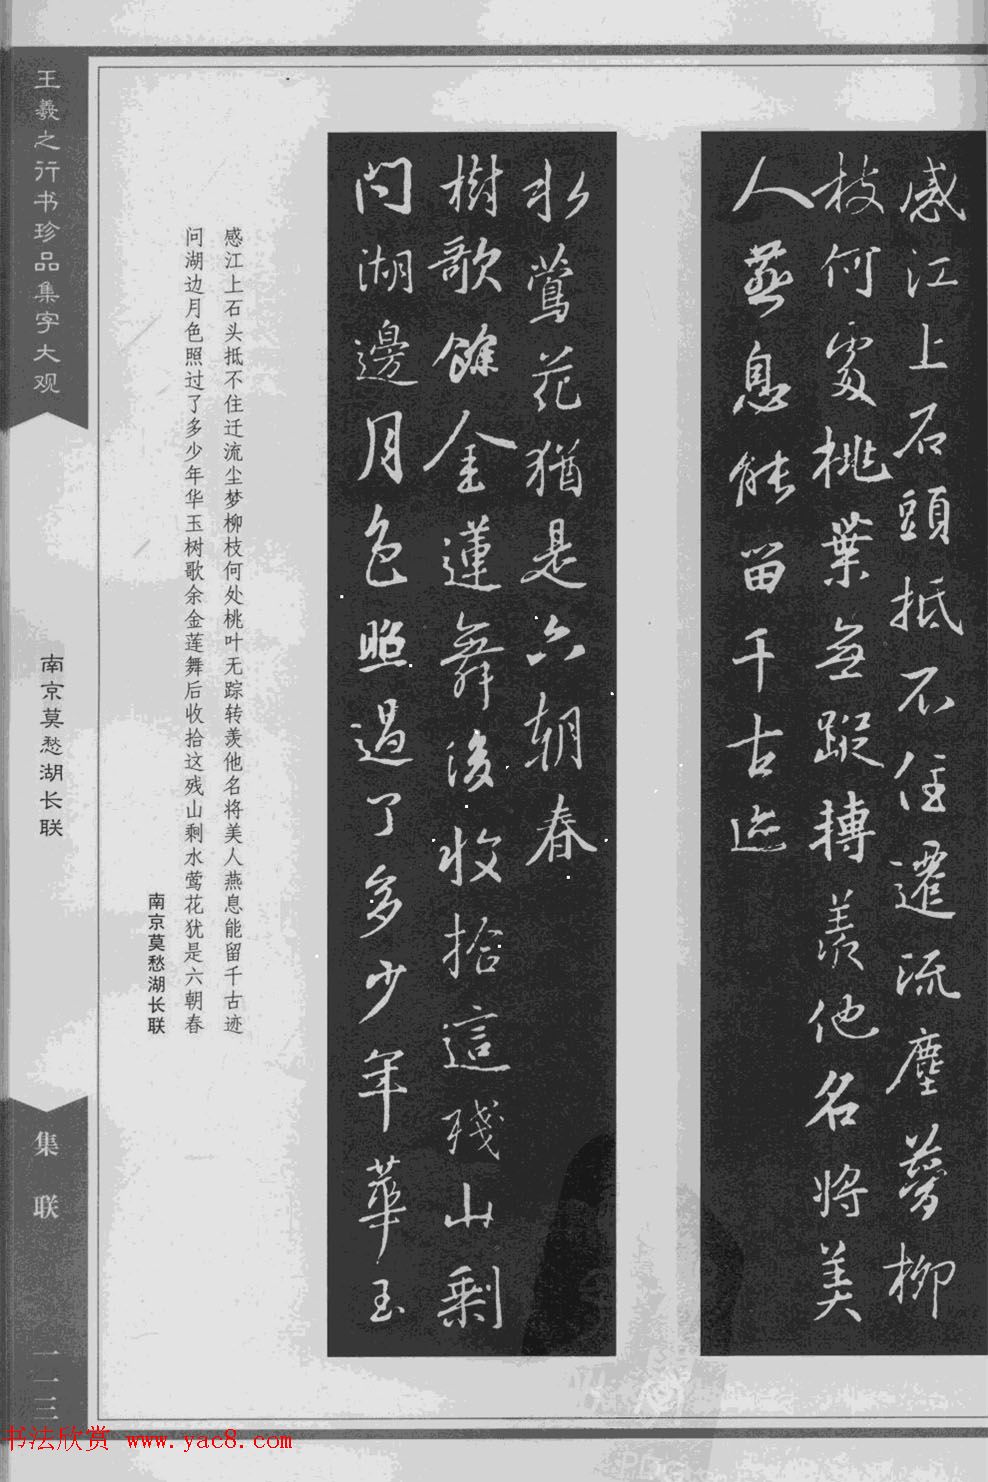 感江上石頭抵不住遷流塵夢柳
枝何處桃葉無蹤轉羨他名將美
人燕息能留千古迹
問湖邊月色照過了多少年華玉
樹歌餘金蓮舞後收拾這殘山剩
水鶯花猶是六朝春
感江上石头抵不住迁流尘梦柳枝何处桃叶无踪转羡他名将美人燕息能留千古迹
问湖边月色照过了多少年华玉树歌余金莲舞后收拾这残山剩水莺花犹是六朝春
南京莫愁湖长联
王羲之行书珍品集字大观
南京莫愁湖长联
集联
一二三
书法欣赏 www.yac8.com